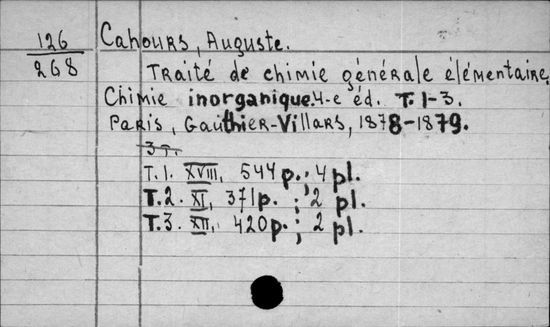 126
268
Cahours, Auguste.
Traité de chimie générale élémentaire.
Chimie inorganique. 4-e éd. T. 1-3.
Paris, Gauthier-Villars, 1878-1879.
3 т.
T. 1. XVIII, 544 p.; 4 pl.
T. 2. XI, 371 p. ; 2 pl.
T. 3. XII, 420 p. ; 2 pl.